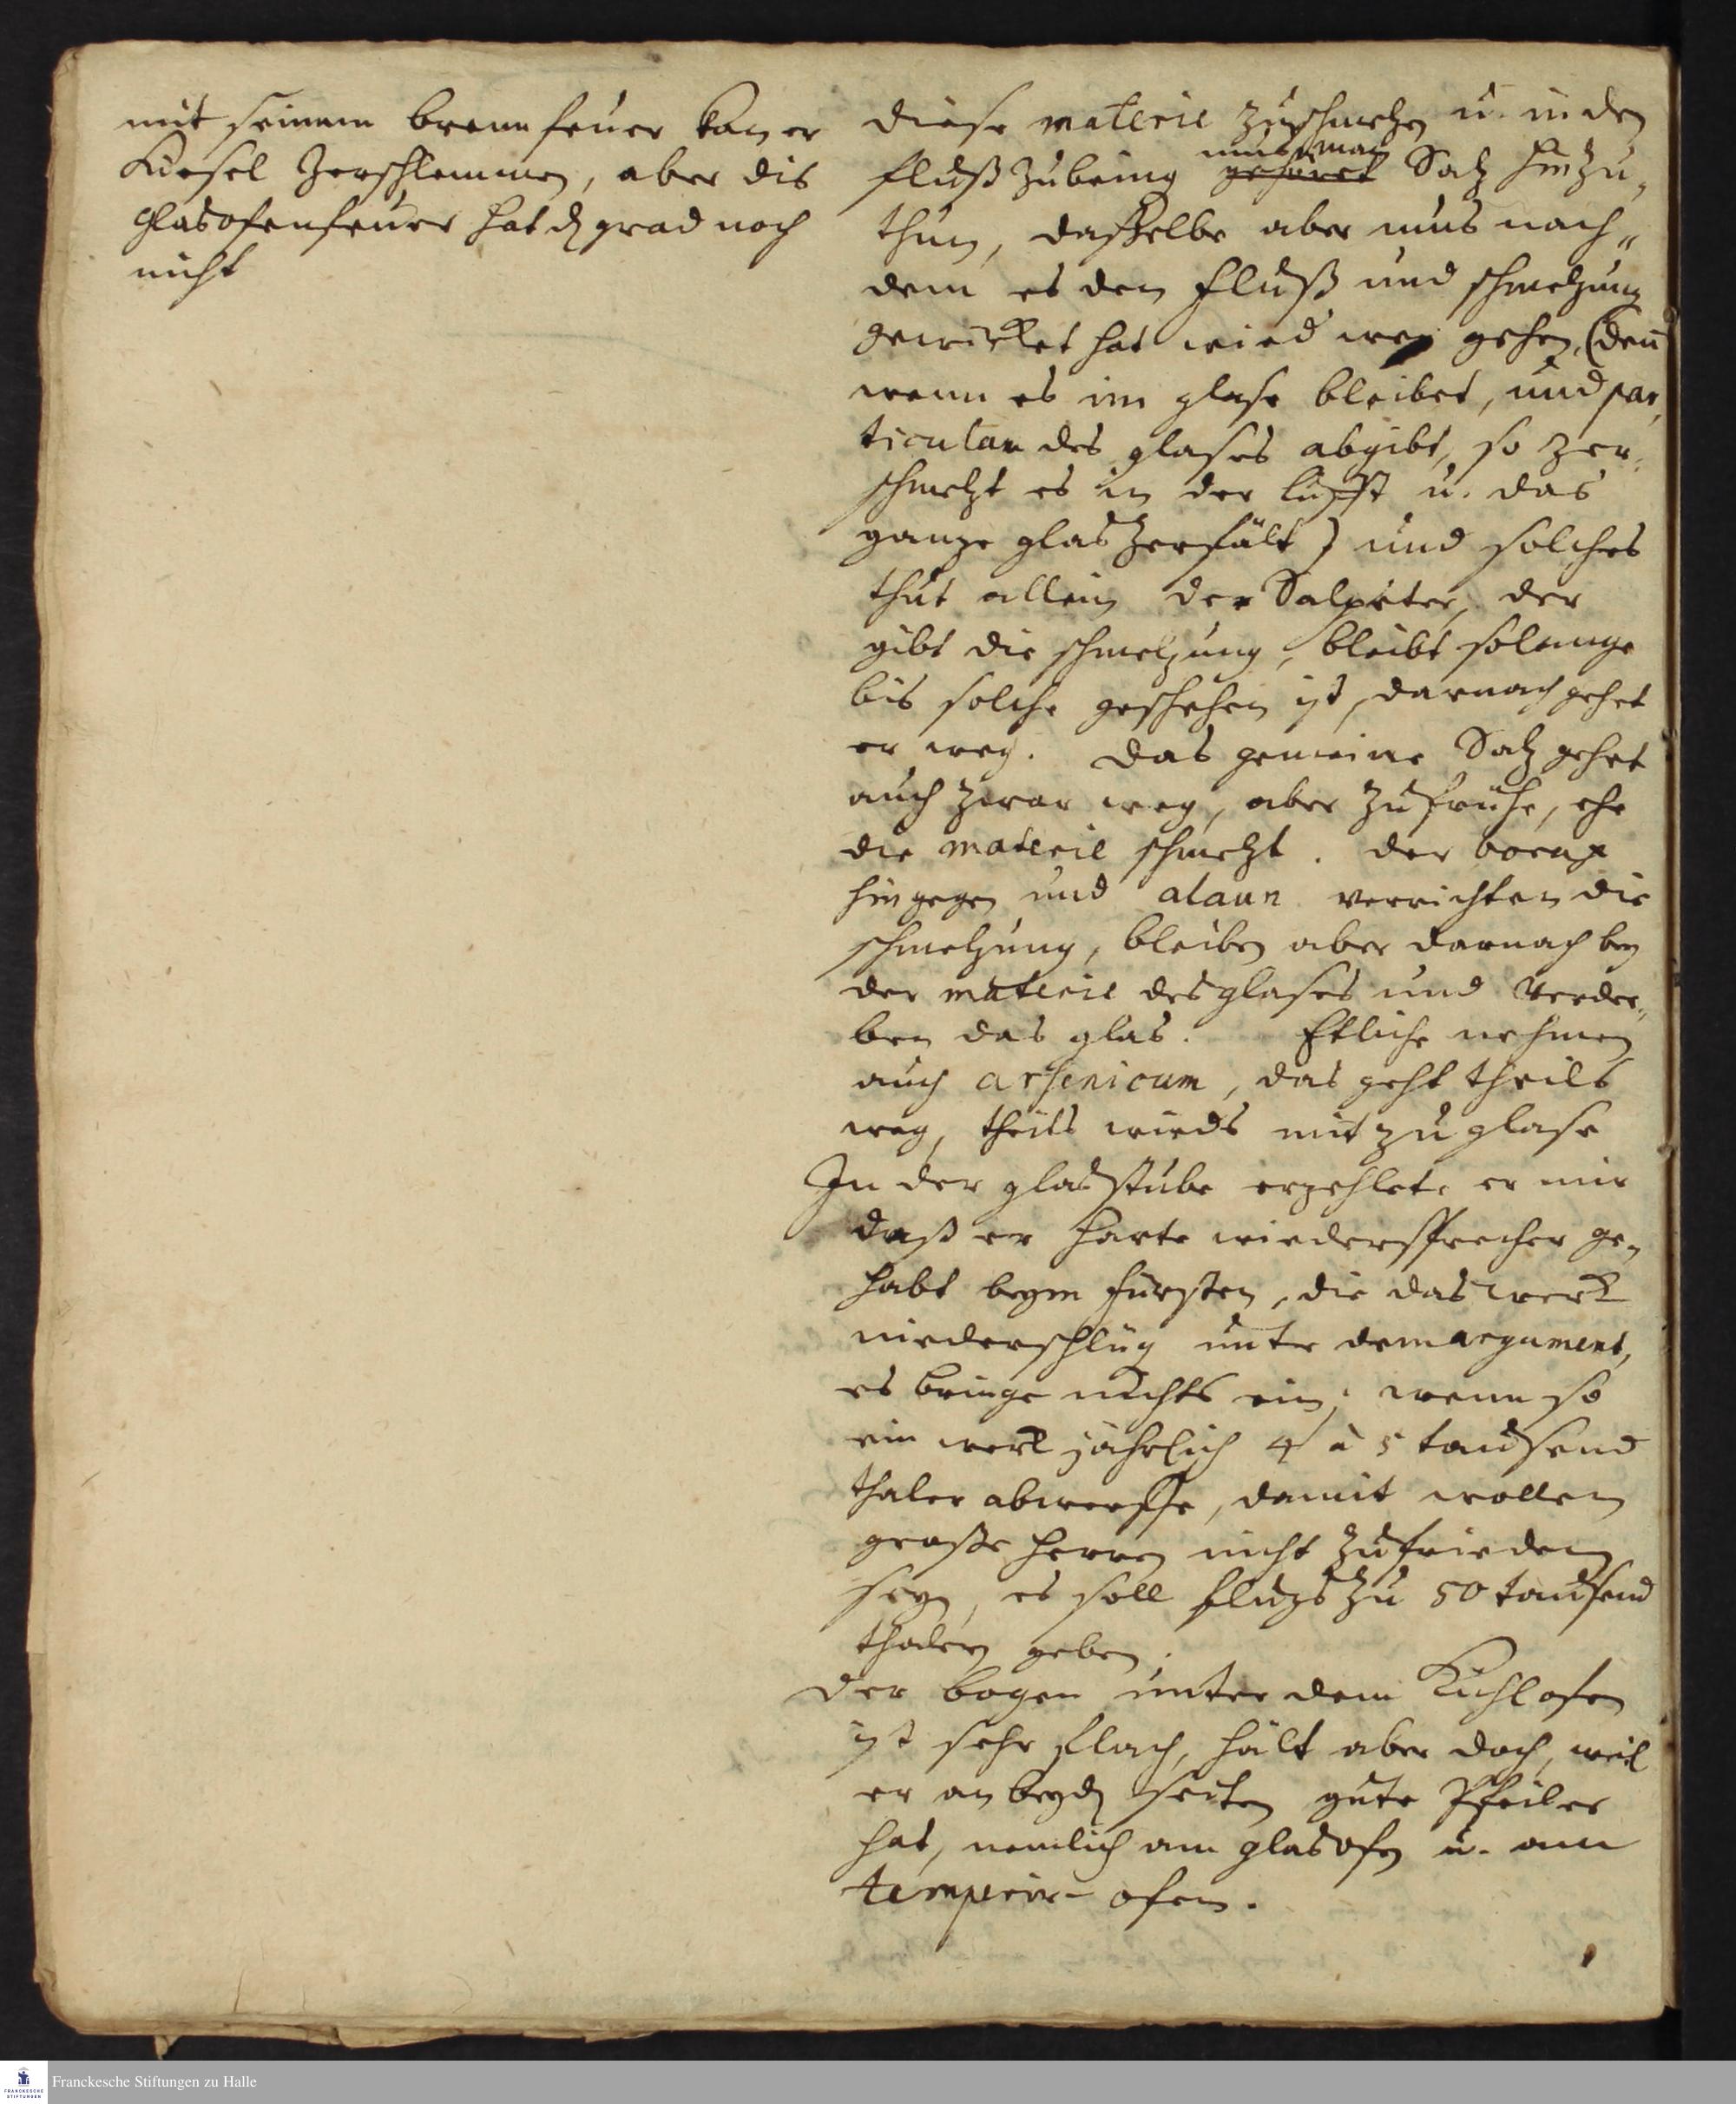 mit seinem brennfeuer kan er
Kiesel Zerschlemmen, aber dis
glasofenfeuer hat d grad noch
nicht
diese materie zuschmelzen u. in den
muß man
fluß zubring gehöret Saltz hinzu„
thun, dasselbe aber mus nach„
dem es den fluß und schmeltzung
gewircket hat wied weg gehen, (den̄
wenn es im glase bleibet, und par„
ticulam des glases abgibt, so zer„
schmeltzt es in der lufft u. das
gantze glas zerfält) und solches
thut allein der Salpeter, der
gibt die schmeltzung, bleibt solange
bis solche geschehen ist, darnach gehet
er weg. das gemeine Saltz gehet
auch zwar weg, aber zu frühe, ehe
die materie schmeltzt. der borax
hingegen und alaun verrichten die
schmeltzung, bleiben aber darnach bey
der materie des glases und verder„
ben das glas. Etliche nehmen
auch arsenicum, das geht theils
weg, theils wirds mit zu glase
In der glasstube erzehlete er mir
daß er harte wiedersprecher ge„
habt beym fürsten, die das werk
niederschlüg unter dem argument,
es bringe nichts ein, wenn so
ein werk jährlich 4 à 5 tausend
thaler abwerffe, damit wollen
grosse herren nicht zufrieden
seyn, es soll flugs zu 50 tausend
thalern geben.
der bogen unter dem Kühlofen
ist sehr flach, hält aber doch, weil
er an beyden seiten gute Pfeiler
hat, nemlich am glasofen u. am
temperir-ofen.
FRANCKESCHE
STIFTUNGEN
Franckesche Stiftungen zu Halle